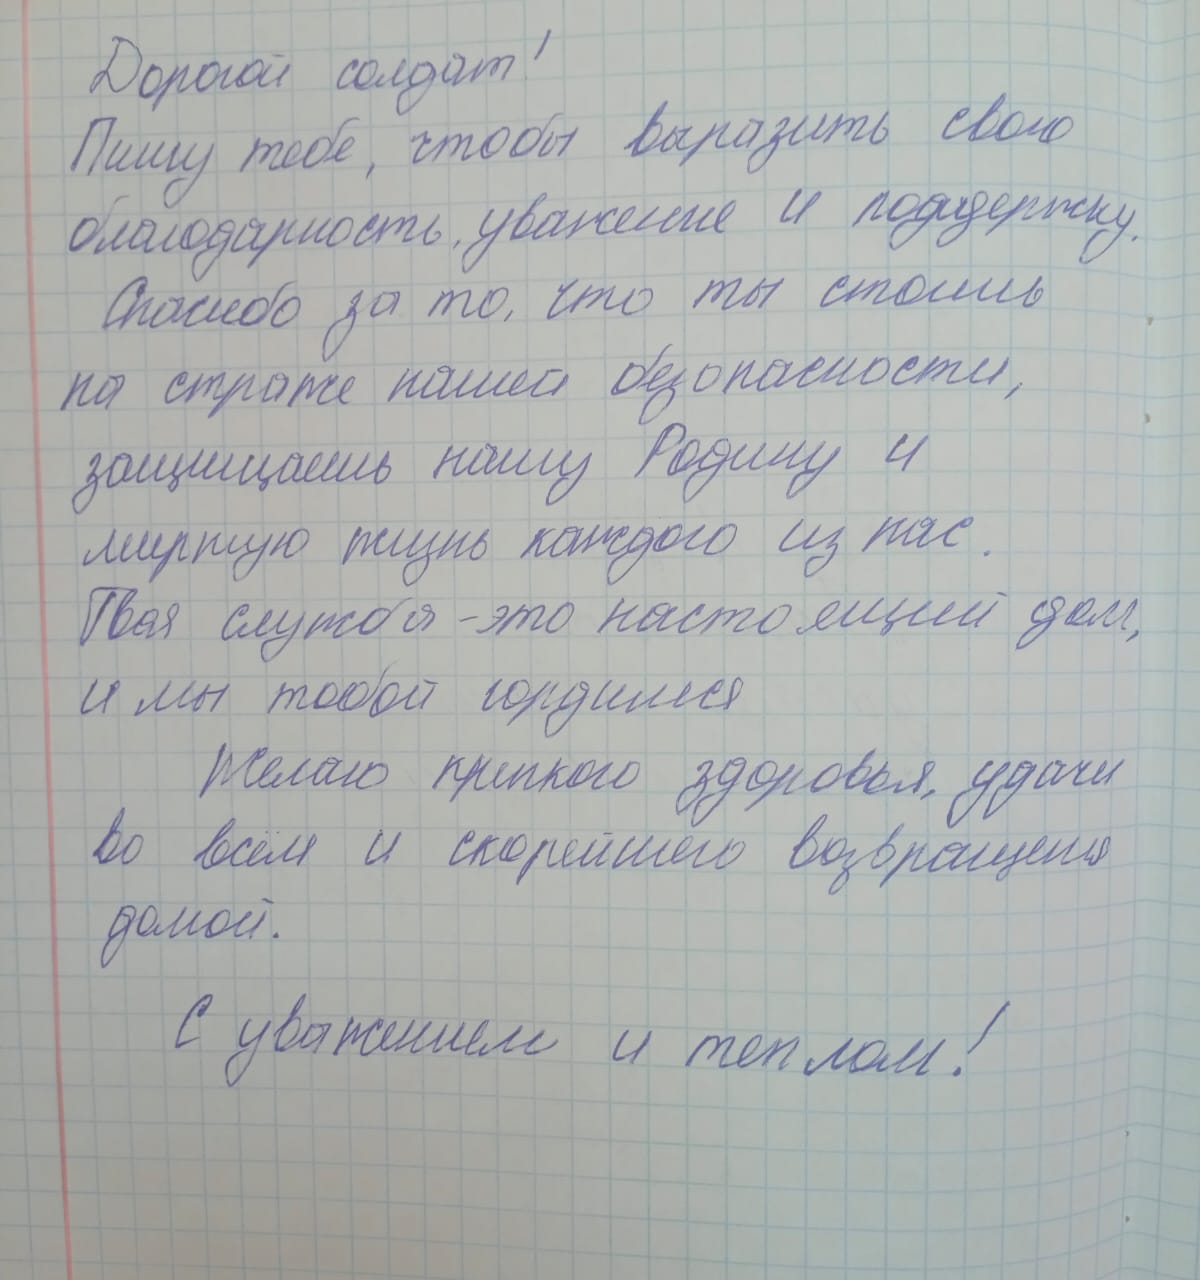 Дорогой солдат!
Пишу тебе, чтобы выразить свою
благодарность, уважение и поддержку.
Спасибо за то, что ты стоишь
на страже нашей безопасности,
защищаешь нашу Родину и
мирную жизнь каждого из нас.
Твоя служба - это настоящий долг,
и мы тобой гордимся
Желаю крепкого здоровья, удачи
во всём и скорейшего возвращения
домой.
С уважением и теплом!